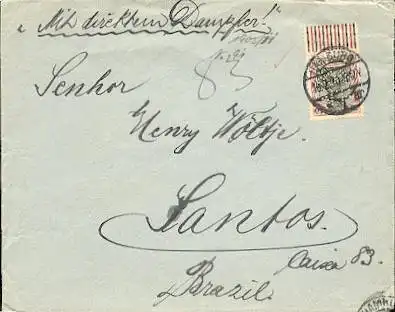 „Mit direktem Dampfer!"
83
Senhor
Henry Wöltje
Santos.
Caixa 83.
Brazil.